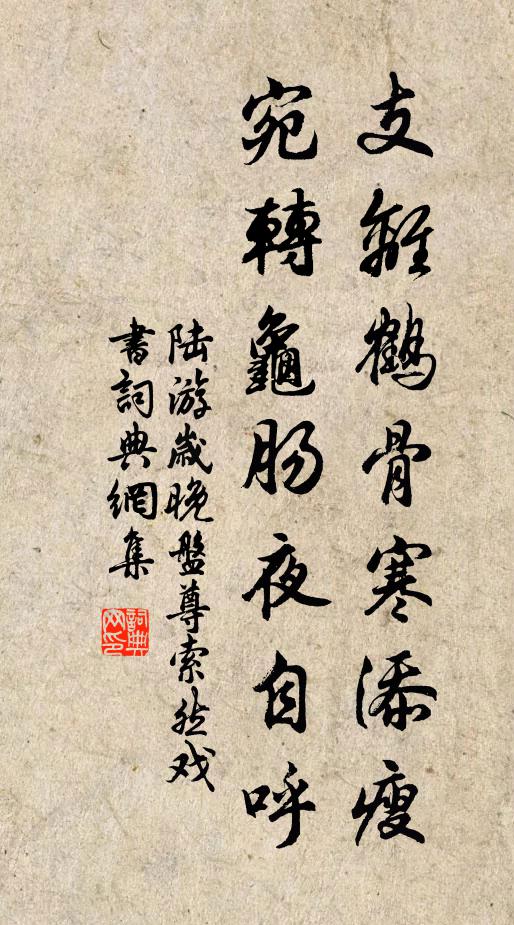 支離鶴骨寒添瘦
宛轉龜腸夜自呼
陆游歲晚盤尊索然戏
書詞典網集
詞典
网印